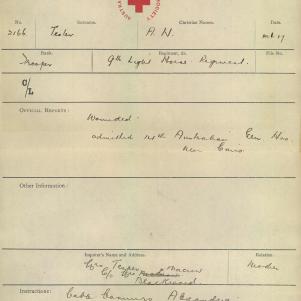 SOCIETY
No.
Surname.
Christian Names.
Date.
2166
Tester
A. N.
Rank.
Regiment, &c.
File No.
Trooper
9th Light Horse Regiment.
C/L
OFFICIAL REPORTS:
Wounded.
admitted 14th Australian Gen Hos
near Cairo
Other Information:
Inquirer's Name and Address.
Relation.
Mrs Tester
Mother
C/o Mrs
Blackwood
Instructions:
Cable